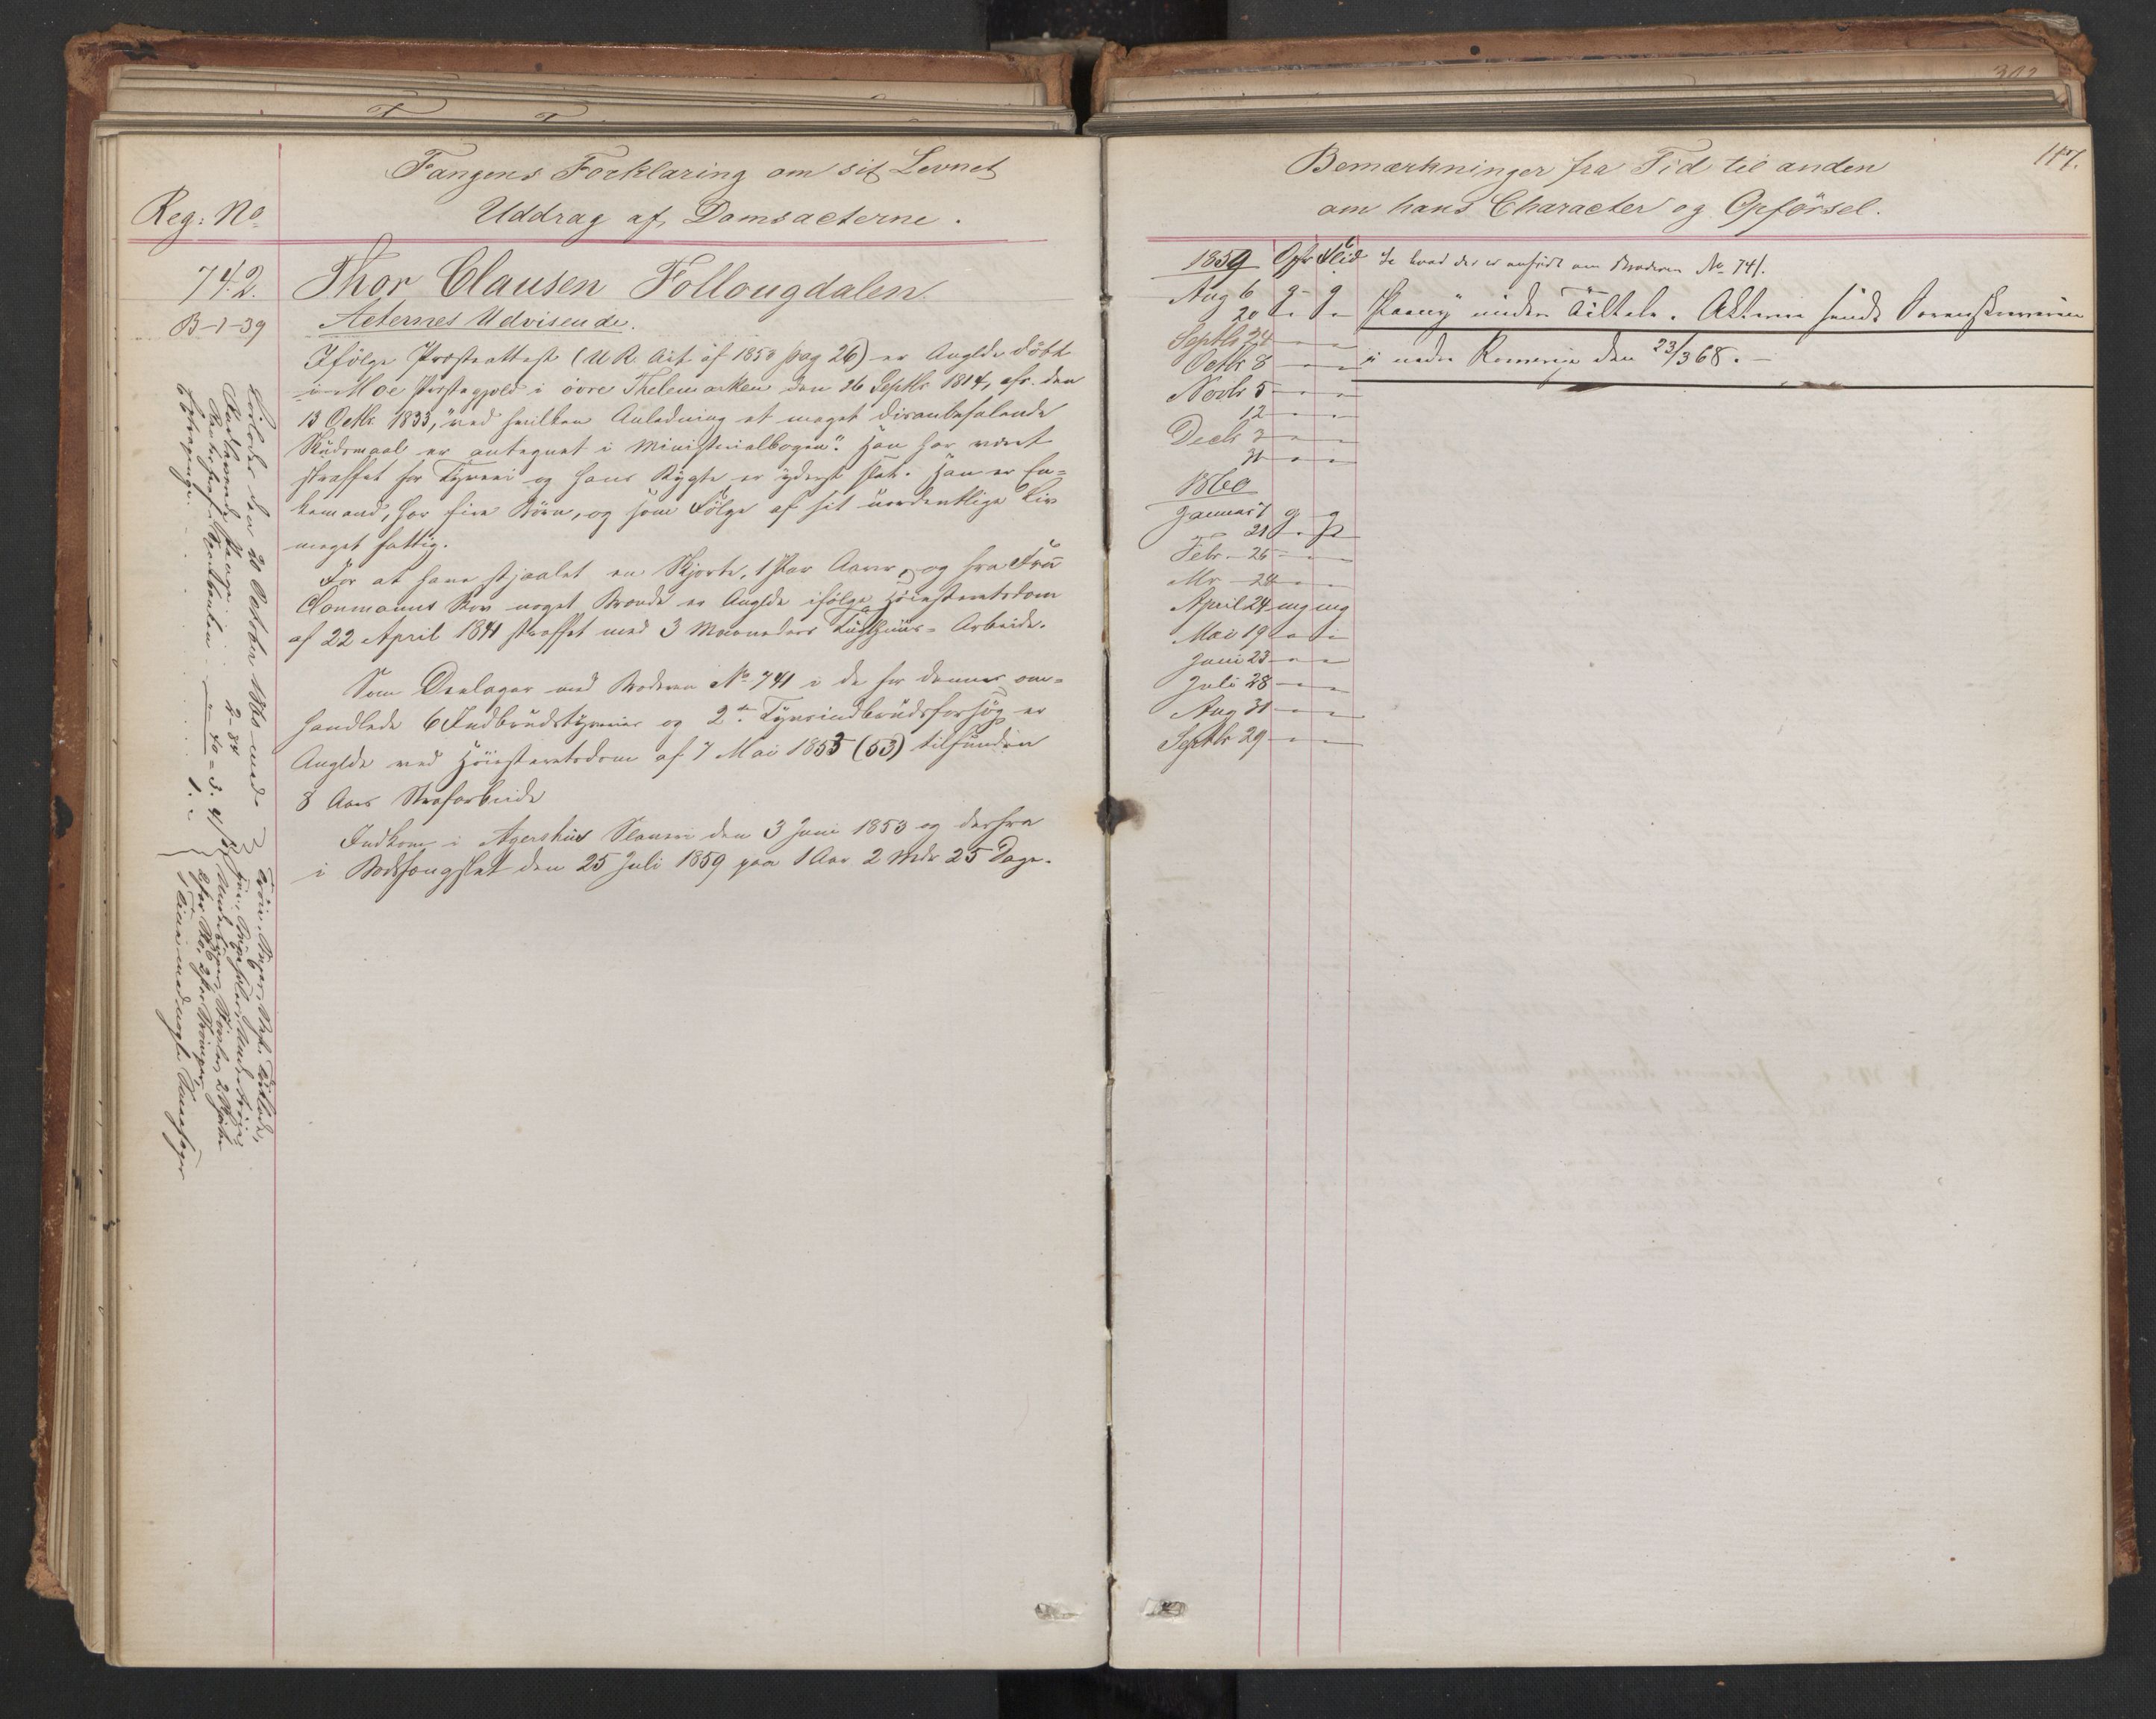 Fangens Forklaring om sit Levnet
Reg: No
Uddrag af Domsacterne.
742. Thor Clausen Follougdalen
B-1-39 Acternes Udvisende.
Ifölge Præsteattest (U R Act af 1850 pag 26) er Anglde döbt
i Moe Præstegjeld i övre Thelemarken den 26 Septbr 1814, cfr. den
13 Octbr 1833, "ved hvilken Anledning et meget disanbefalende
Skudsmaal er antegnet i Ministerialbogen". Han har været
straffet for Tyveri og hans Rygte er yderst slet. Han er En-
kemand, har fire Börn, og som Fölge af sit uordentlige Liv
meget fattig.
For at have stjaalet en Skjorte, 1 Par Aarer, og fra Fru
Cloumanns Skov noget Brænde er Anglde ifölge Höiesteretsdom
af 22 April 1841 straffet med 3 Maaneders Tugthuus-Arbeide.
Som Deelager med Broderen No 741 i de for denne om-
handlede 6 Indbrudstyverier og 2de Tyvsindbrudsforsög er
Anglde ved Höiesteretsdom af 7 Mai 1853 (53) tilfunden
8 Aars Strafarbeide
Indkom i Agershus Slaveri den 3 Juni 1853 og derfra
i Bodsfængslet den 25 Juli 1859 paa 1 Aar 2 Mdr 25 Dage.
den 20 October 1860 med
Penge 2-84
Bemærkninger fra Tid til anden
117.
om hans Character og Opförsel.
1859 Opf Flid Se hvad der er anfört om Broderen No 741.
Aug 6 g g
20 " " Paany under Tiltale. Akterne sendt Sorenskriveren
Septbr 24 " "
i nedre Romerige den 23/3 68.
Octbr 8 " "
Novbr 5 " "
12 " "
Decbr 3 " "
31 " "
1860
Januar 7 g g
21 " "
Febr. 25 " "
Mr 24 " "
April 24 mg mg
Mai 19 " "
Juni 23 " "
Juli 28 " "
Aug 31 " "
Septbr 29 " "